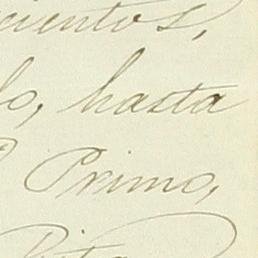 cientos,
lo, hasta
Primo,